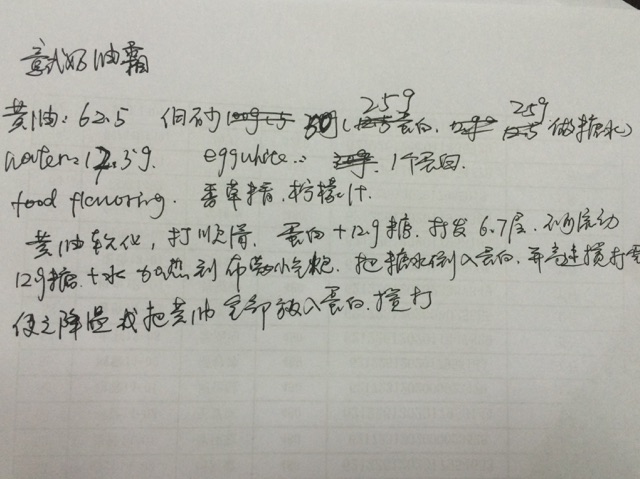 意式奶油霜
黄油:62.5 细砂 50g(25g 蛋白. 25g 做糖水)
water:12.5g. eggwhite: 1个蛋白.
food flavoring. 香草精.柠檬汁.
黄油软化,打顺滑. 蛋白+12g糖.打发6.7层.不再流动
12g糖.+水 加热到布满小气泡.把糖水倒入蛋白.并高速搅打
使之降温 我把黄油全部放入蛋白.搅打